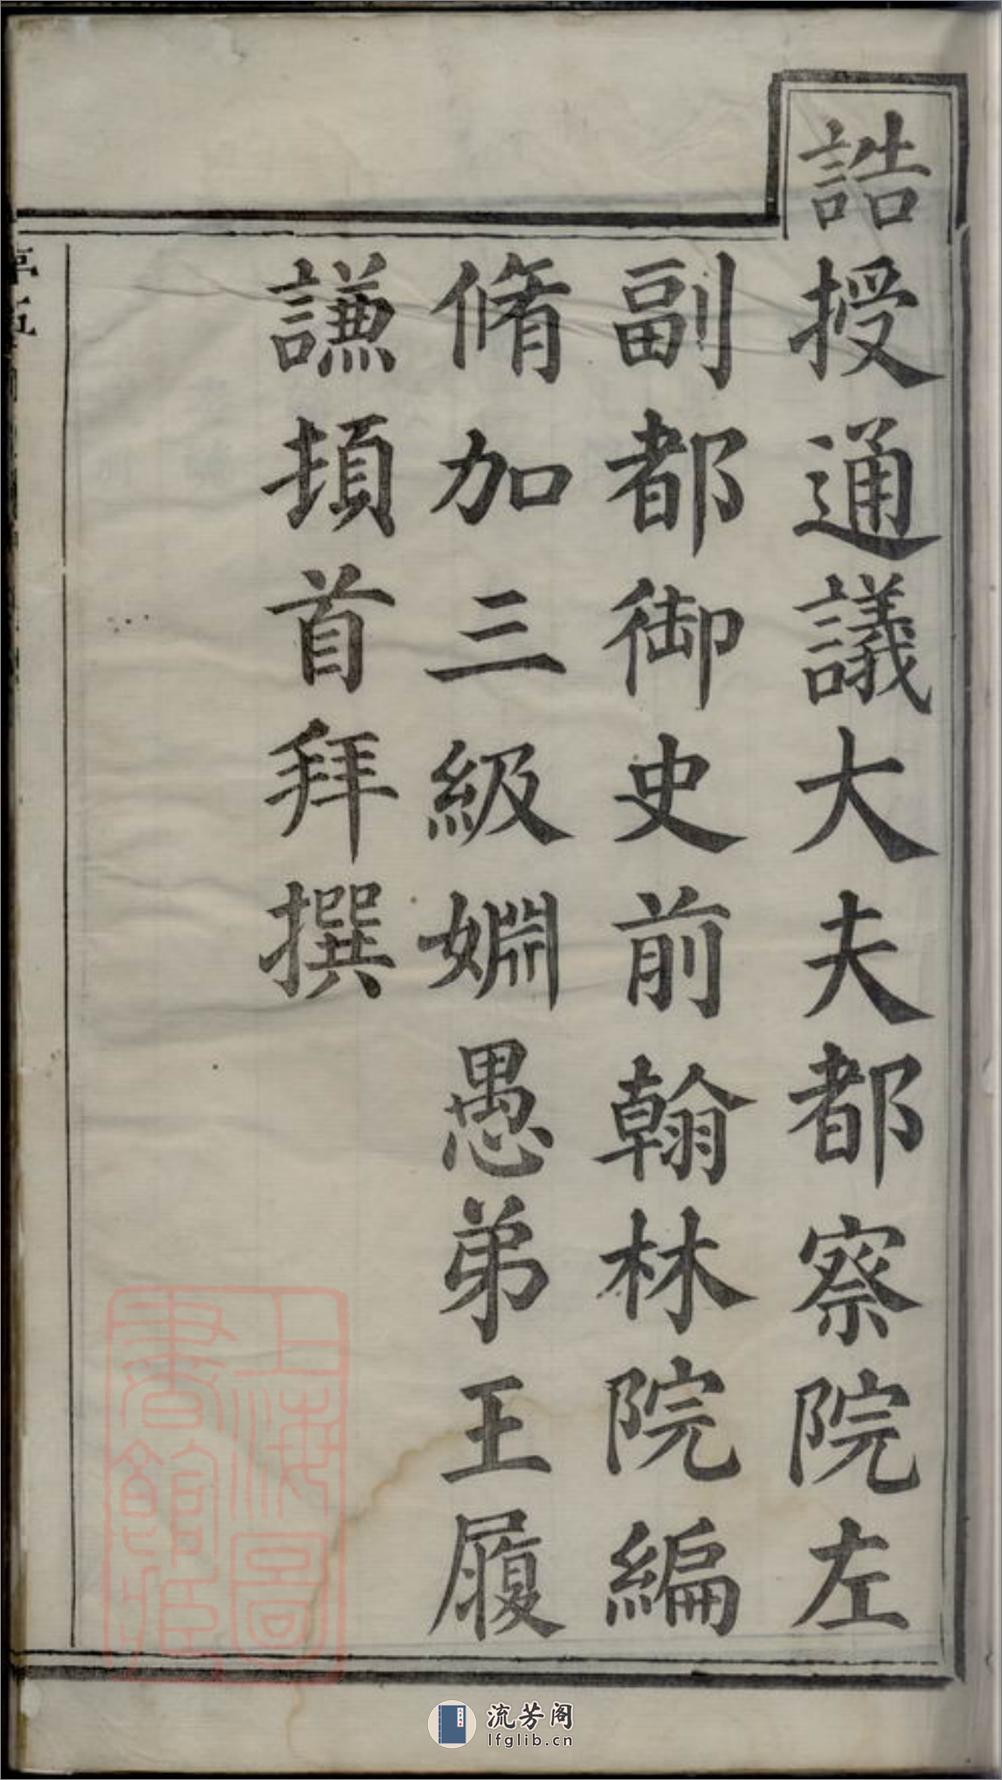 誥授通議大夫都察院左
副都御史前翰林院編
脩加三級婣愚弟王履
謙頓首拜撰
上海圖
書館藏
流芳阁
lfglib.cn